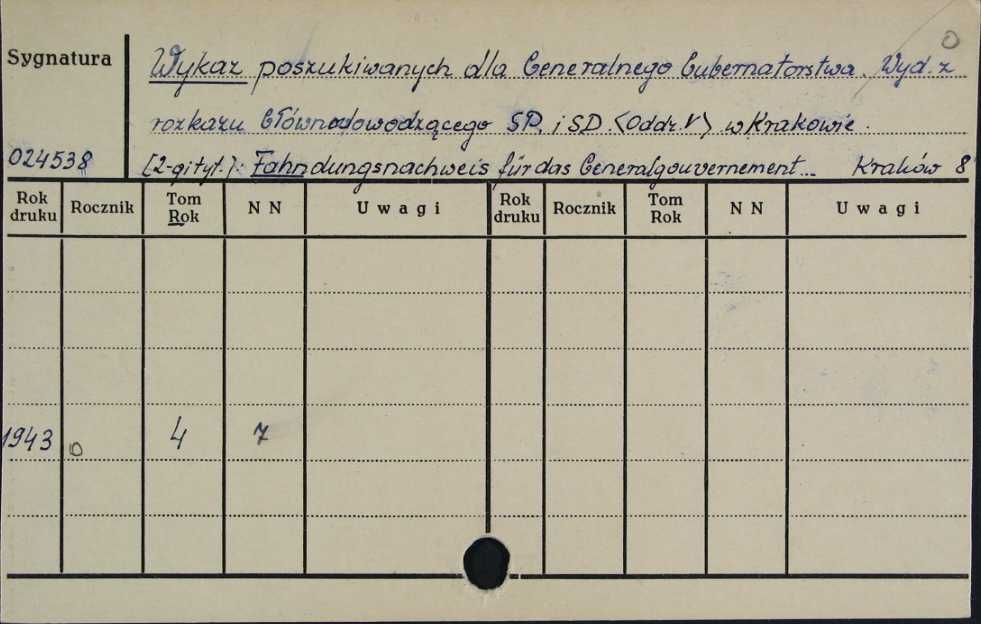 Sygnatura
Wykaz poszukiwanych dla Generalnego Gubernatorstwa. Wyd. z
rozkazu Głównodowodzącego SP. i SD. <Oddz. V> w Krakowie.
024538
[2-gi tyt.]: Fahndungsnachweis für das Generalgouvernement... Kraków 8
Rok druku Rocznik Tom Rok N N Uwagi Rok druku Rocznik Tom Rok N N Uwagi
1943 4 7